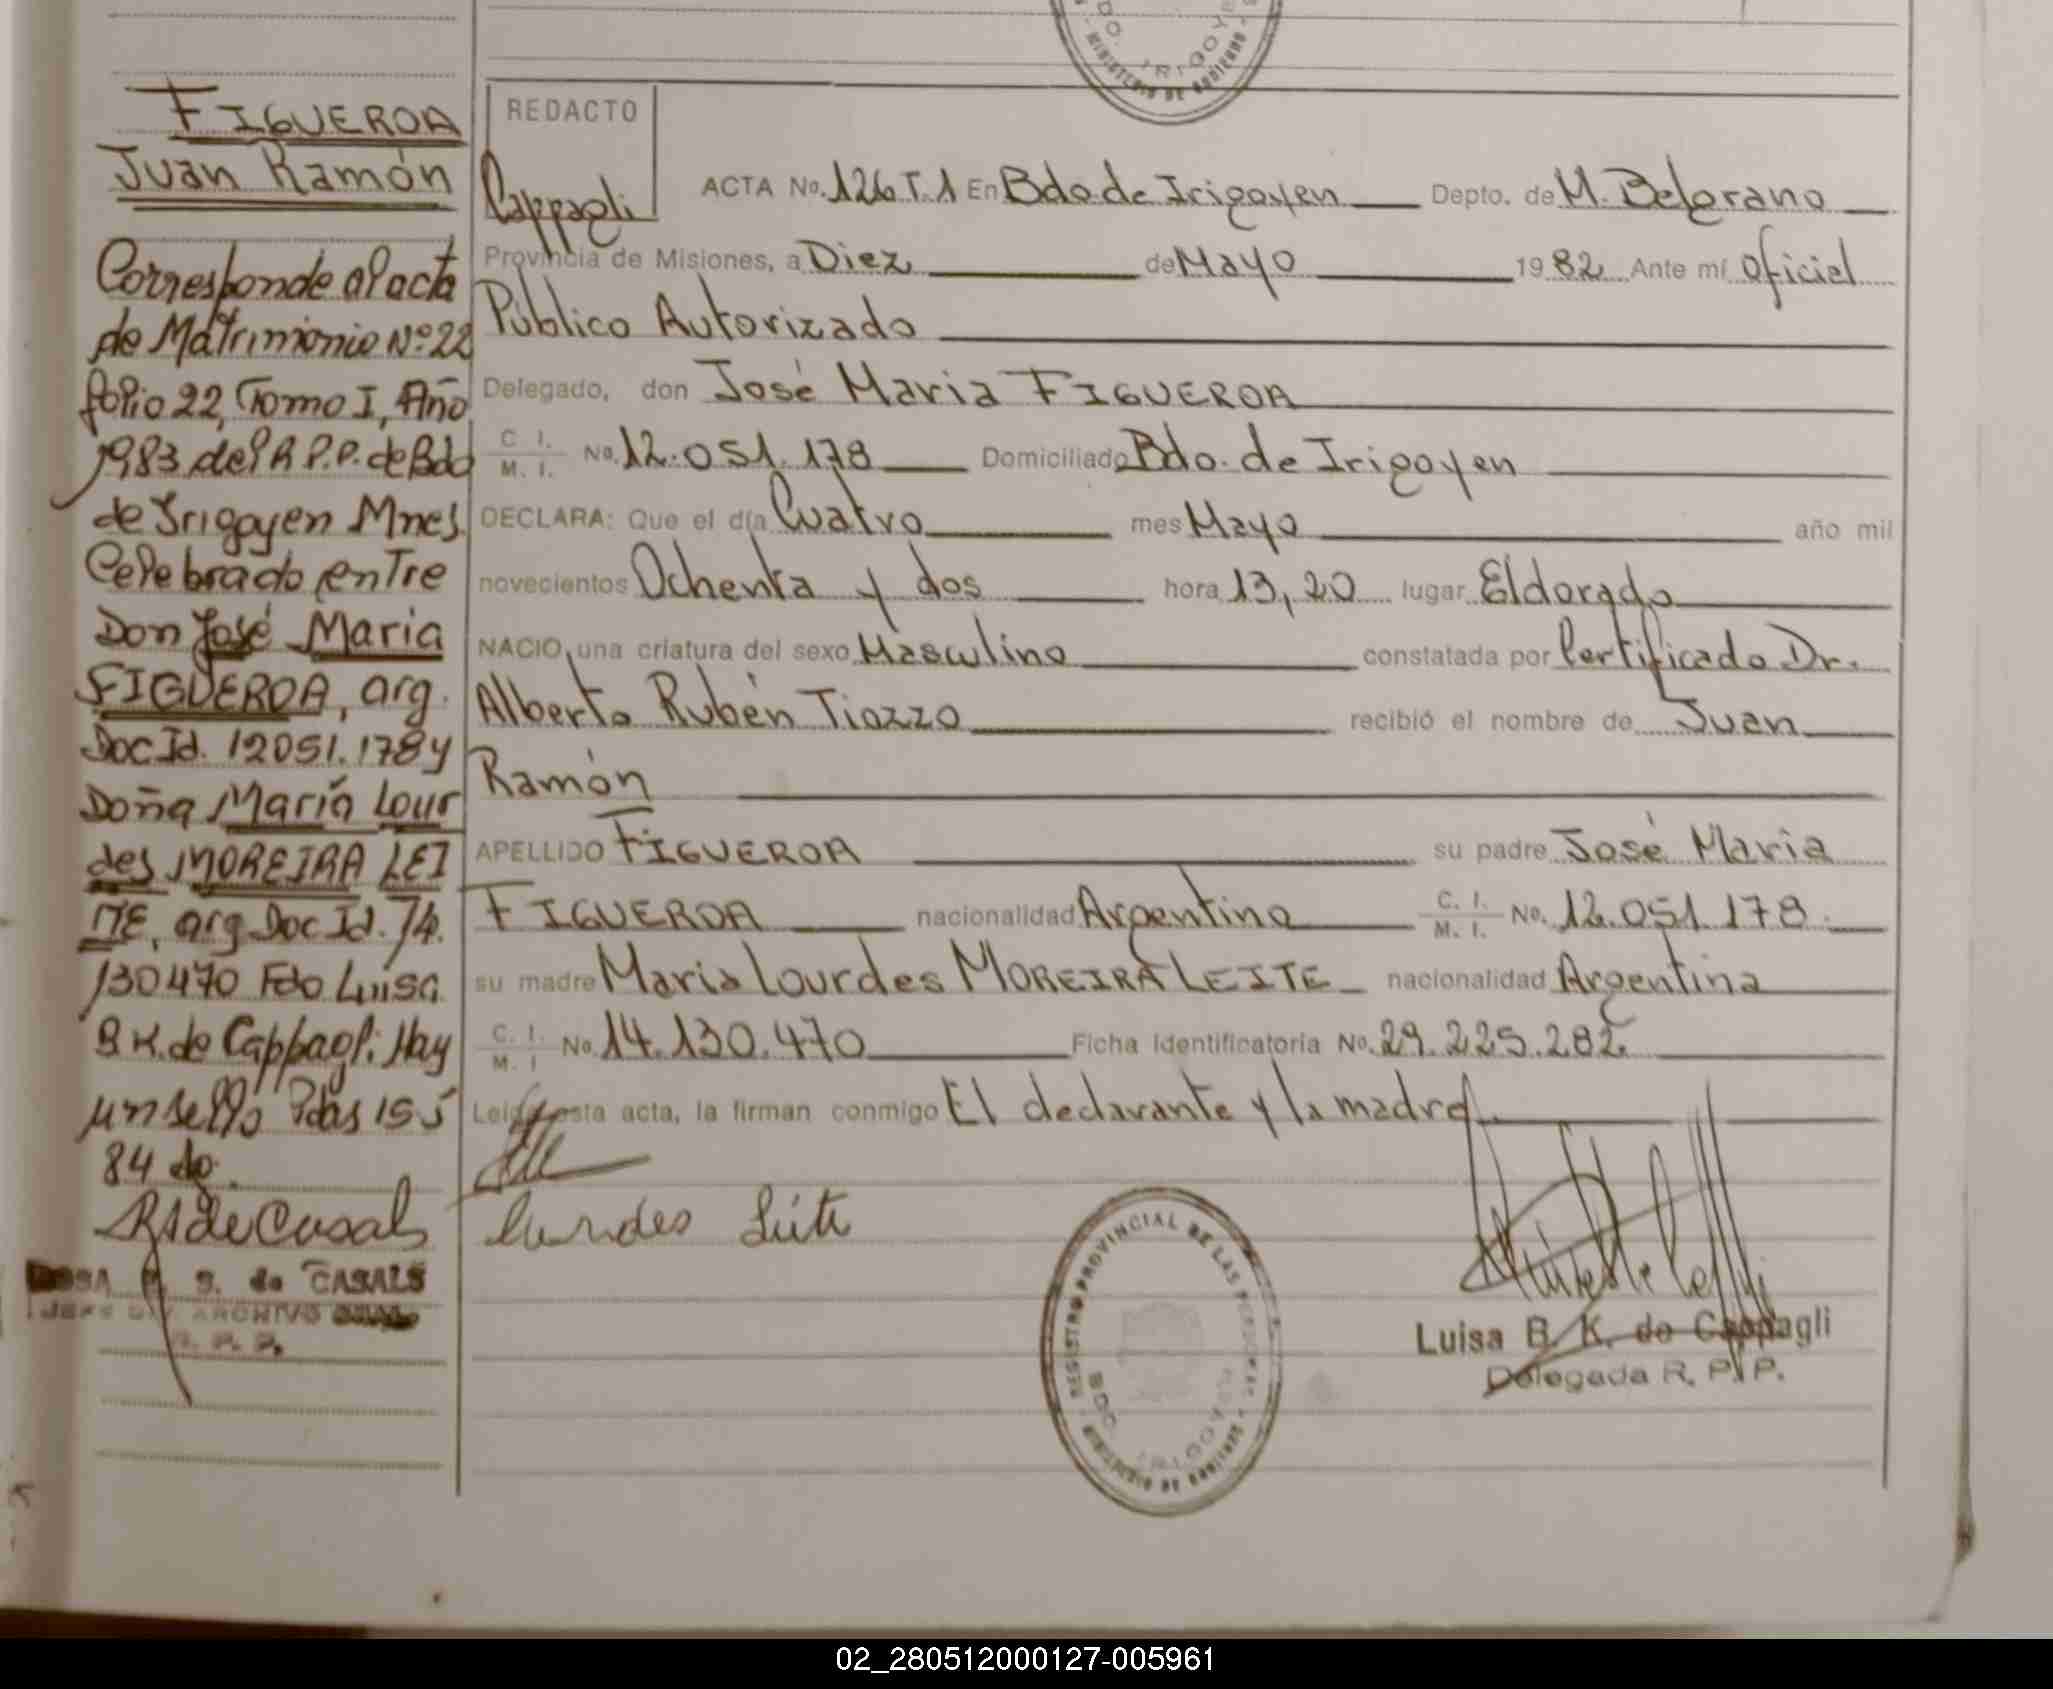 FIGUEROA
Juan Ramón
Corresponde al acta
de Matrimonio Nº 22
folio 22, Tomo I, Año
1983 del R.P.P. de Bdo
de Irigoyen Mnes.
Celebrado entre
Don José Maria
FIGUEROA, arg.
Doc Id. 12051.178 y
Doña María Lour
des MOREIRA LEI
TE, arg Doc Id. 14.
130470 Fdo Luisa
B K. de Cappagli Hay
un sello Pdas
84 do.
RS de Casals
ROSA S. de CASALS
JEFE DIV. ARCHIVO
R. P. P.
DO. IRIGOYE
MINISTERIO DE GOBIERNO
REDACTO
Cappagli
ACTA No. 126 T.1 En Bdo. de Irigoyen Depto. de M. Belgrano
Provincia de Misiones, a Diez de Mayo 1982 Ante mí Oficial
Público Autorizado
Delegado, don José Maria FIGUEROA
C. I. M. I. No. 12.051.178 Domiciliado Bdo. de Irigoyen
DECLARA: Que el día Cuatro mes Mayo año mil
novecientos Ochenta y dos hora 13,20 lugar Eldorado
NACIO, una criatura del sexo Masculino constatada por Certificado Dr.
Alberto Rubén Tiozzo recibió el nombre de Juan
Ramón
APELLIDO FIGUEROA su padre José Maria
FIGUEROA nacionalidad Argentina C. I. M. I. No. 12.051.178.
su madre Maria Lourdes MOREIRA LEITE nacionalidad Argentina
C. I. M. I No. 14.130.470 Ficha Identificatoria No. 29.225.282.
Leida esta acta, la firman conmigo El declarante y la madre.
Lurdes Leite
REGISTRO PROVINCIAL DE LAS PERSONAS
BDO. IRIGOYEN
MINISTERIO DE GOBIERNO
Luisa B. K. de Cappagli
Delegada R. P. P.
02_280512000127-005961